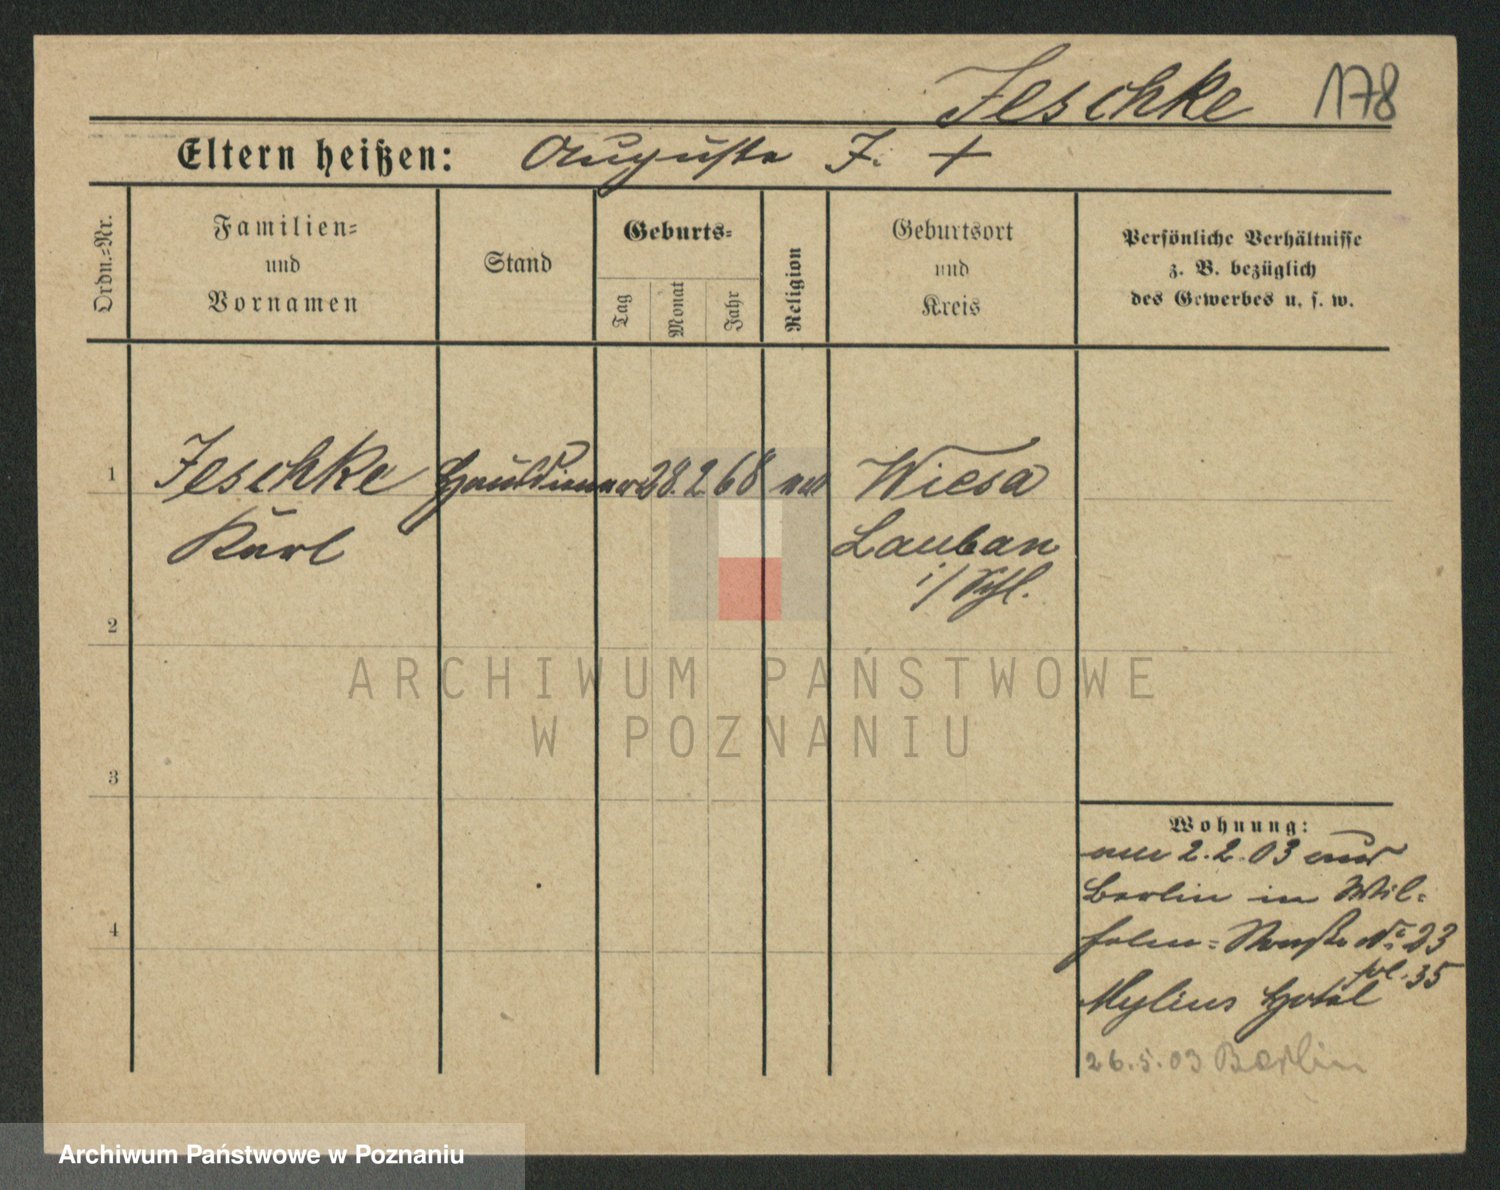 Jeschke 178
Eltern heißen: Auguste J. +
Ordn.-Nr.
Familien-
und
Vornamen
Stand
Geburts-
Tag
Monat
Jahr
Religion
Geburtsort
und
Kreis
Persönliche Verhältnisse
z. B. bezüglich
des Gewerbes u. s. w.
1 Jeschke Hausdiener 28. 2 68 Wiesa
Karl Lauban
i/Schl.
2
3
4
ARCHIWUM PAŃSTWOWE
W POZNANIU
Wohnung:
2.2.03
Berlin in Wil-
helm-Straße No 23
fol. 35
Mylius Hotel
26.5.03 Berlin
Archiwum Państwowe w Poznaniu